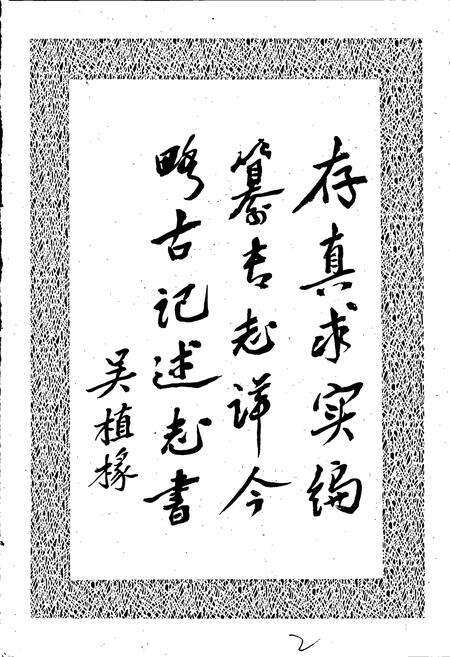 存真求实编
纂志详今
略古记述志书
吴植椽
2